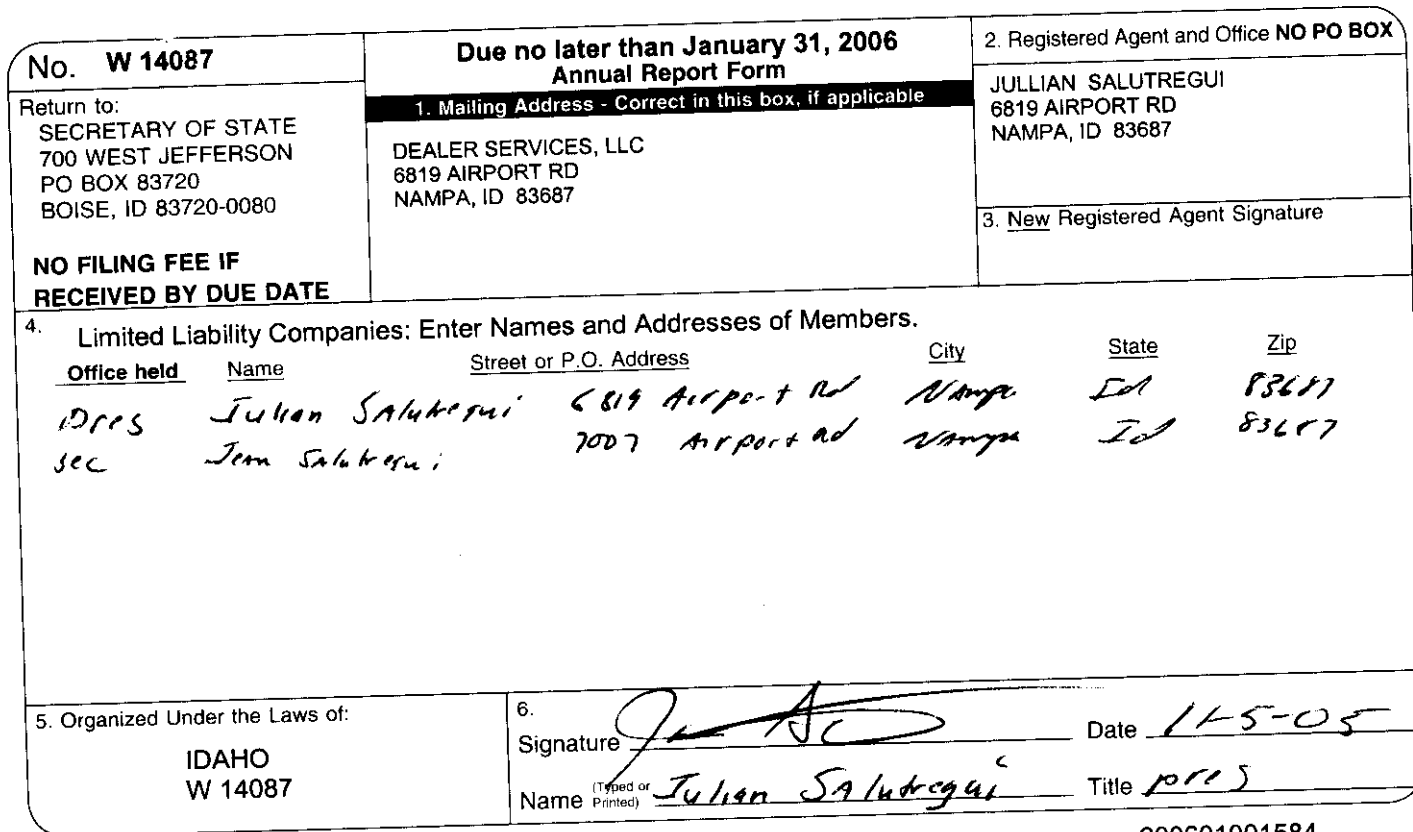 No. W 14087
Return to:
SECRETARY OF STATE
700 WEST JEFFERSON
PO BOX 83720
BOISE, ID 83720-0080
NO FILING FEE IF
RECEIVED BY DUE DATE
Due no later than January 31, 2006
Annual Report Form
1. Mailing Address - Correct in this box, if applicable
DEALER SERVICES, LLC
6819 AIRPORT RD
NAMPA, ID 83687
2. Registered Agent and Office NO PO BOX
JULLIAN SALUTREGUI
6819 AIRPORT RD
NAMPA, ID 83687
3. New Registered Agent Signature
4. Limited Liability Companies: Enter Names and Addresses of Members.
Office held Name Street or P.O. Address City State Zip
Pres Julian SAlutregui 6819 Airport Rd NAmpa Id 83687
sec Jean SAlutregui 7007 Airport Rd NAmpa Id 83687
5. Organized Under the Laws of:
IDAHO
W 14087
6.
Signature Date 11-5-05
Name (Typed or Printed) Julian SAlutregui Title pres